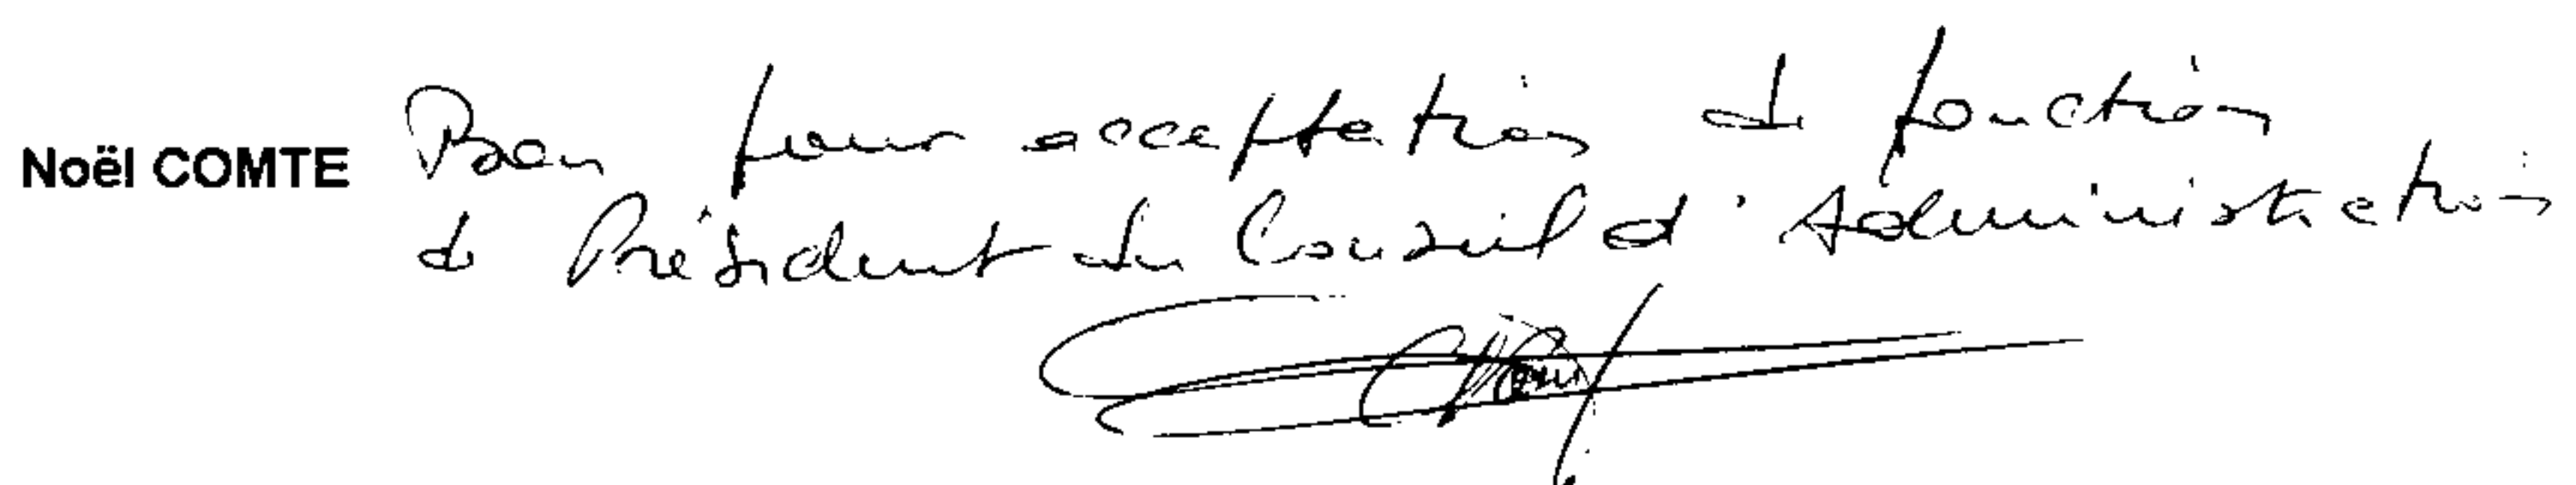 Noël COMTE Bon pour acceptation de fonction
de Président du Conseil d'Administration